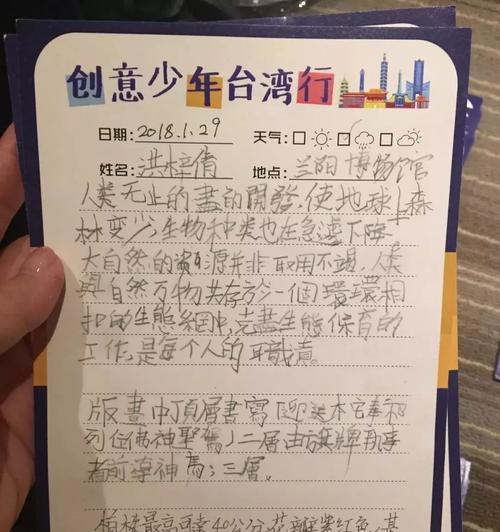 创意少年台湾行
日期: 2018.1.29 天气:
姓名: 洪梓倩 地点: 兰阳博物馆
人类无止的盡的開發,使地球上森
林变少,生物种类也在急速下降
大自然的資源并非取用不竭,人类
與自然万物共存於一個環環相
扣的生態網中,盡生態保育的
工作,是每个人的職責。
版畫中頂層書寫「迎送本宮奉祀
列位佛神聖駕」二層由旗牌執事
者前導神馬;三層。
最高可達40公分,花瓣紫红色,基